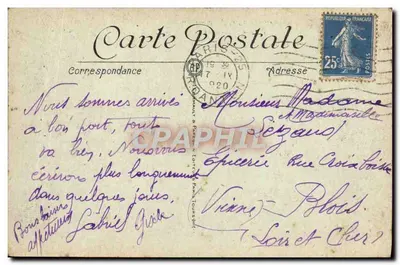 Carte Postale
Correspondance
Adresse
REPUBLIQUE FRANÇAISE
25c
POSTES
PARIS
Nous sommes arrivés
à bon port, tout
va bien. Nous vous
écrirons plus longuement
dans quelques jours.
Bons baisers
affectueux
Gabriel
Monsieur Madame
et Mademoiselle
Legaud
Epicerie Rue Croix boissée
Vienne Blois
Loir et Cher